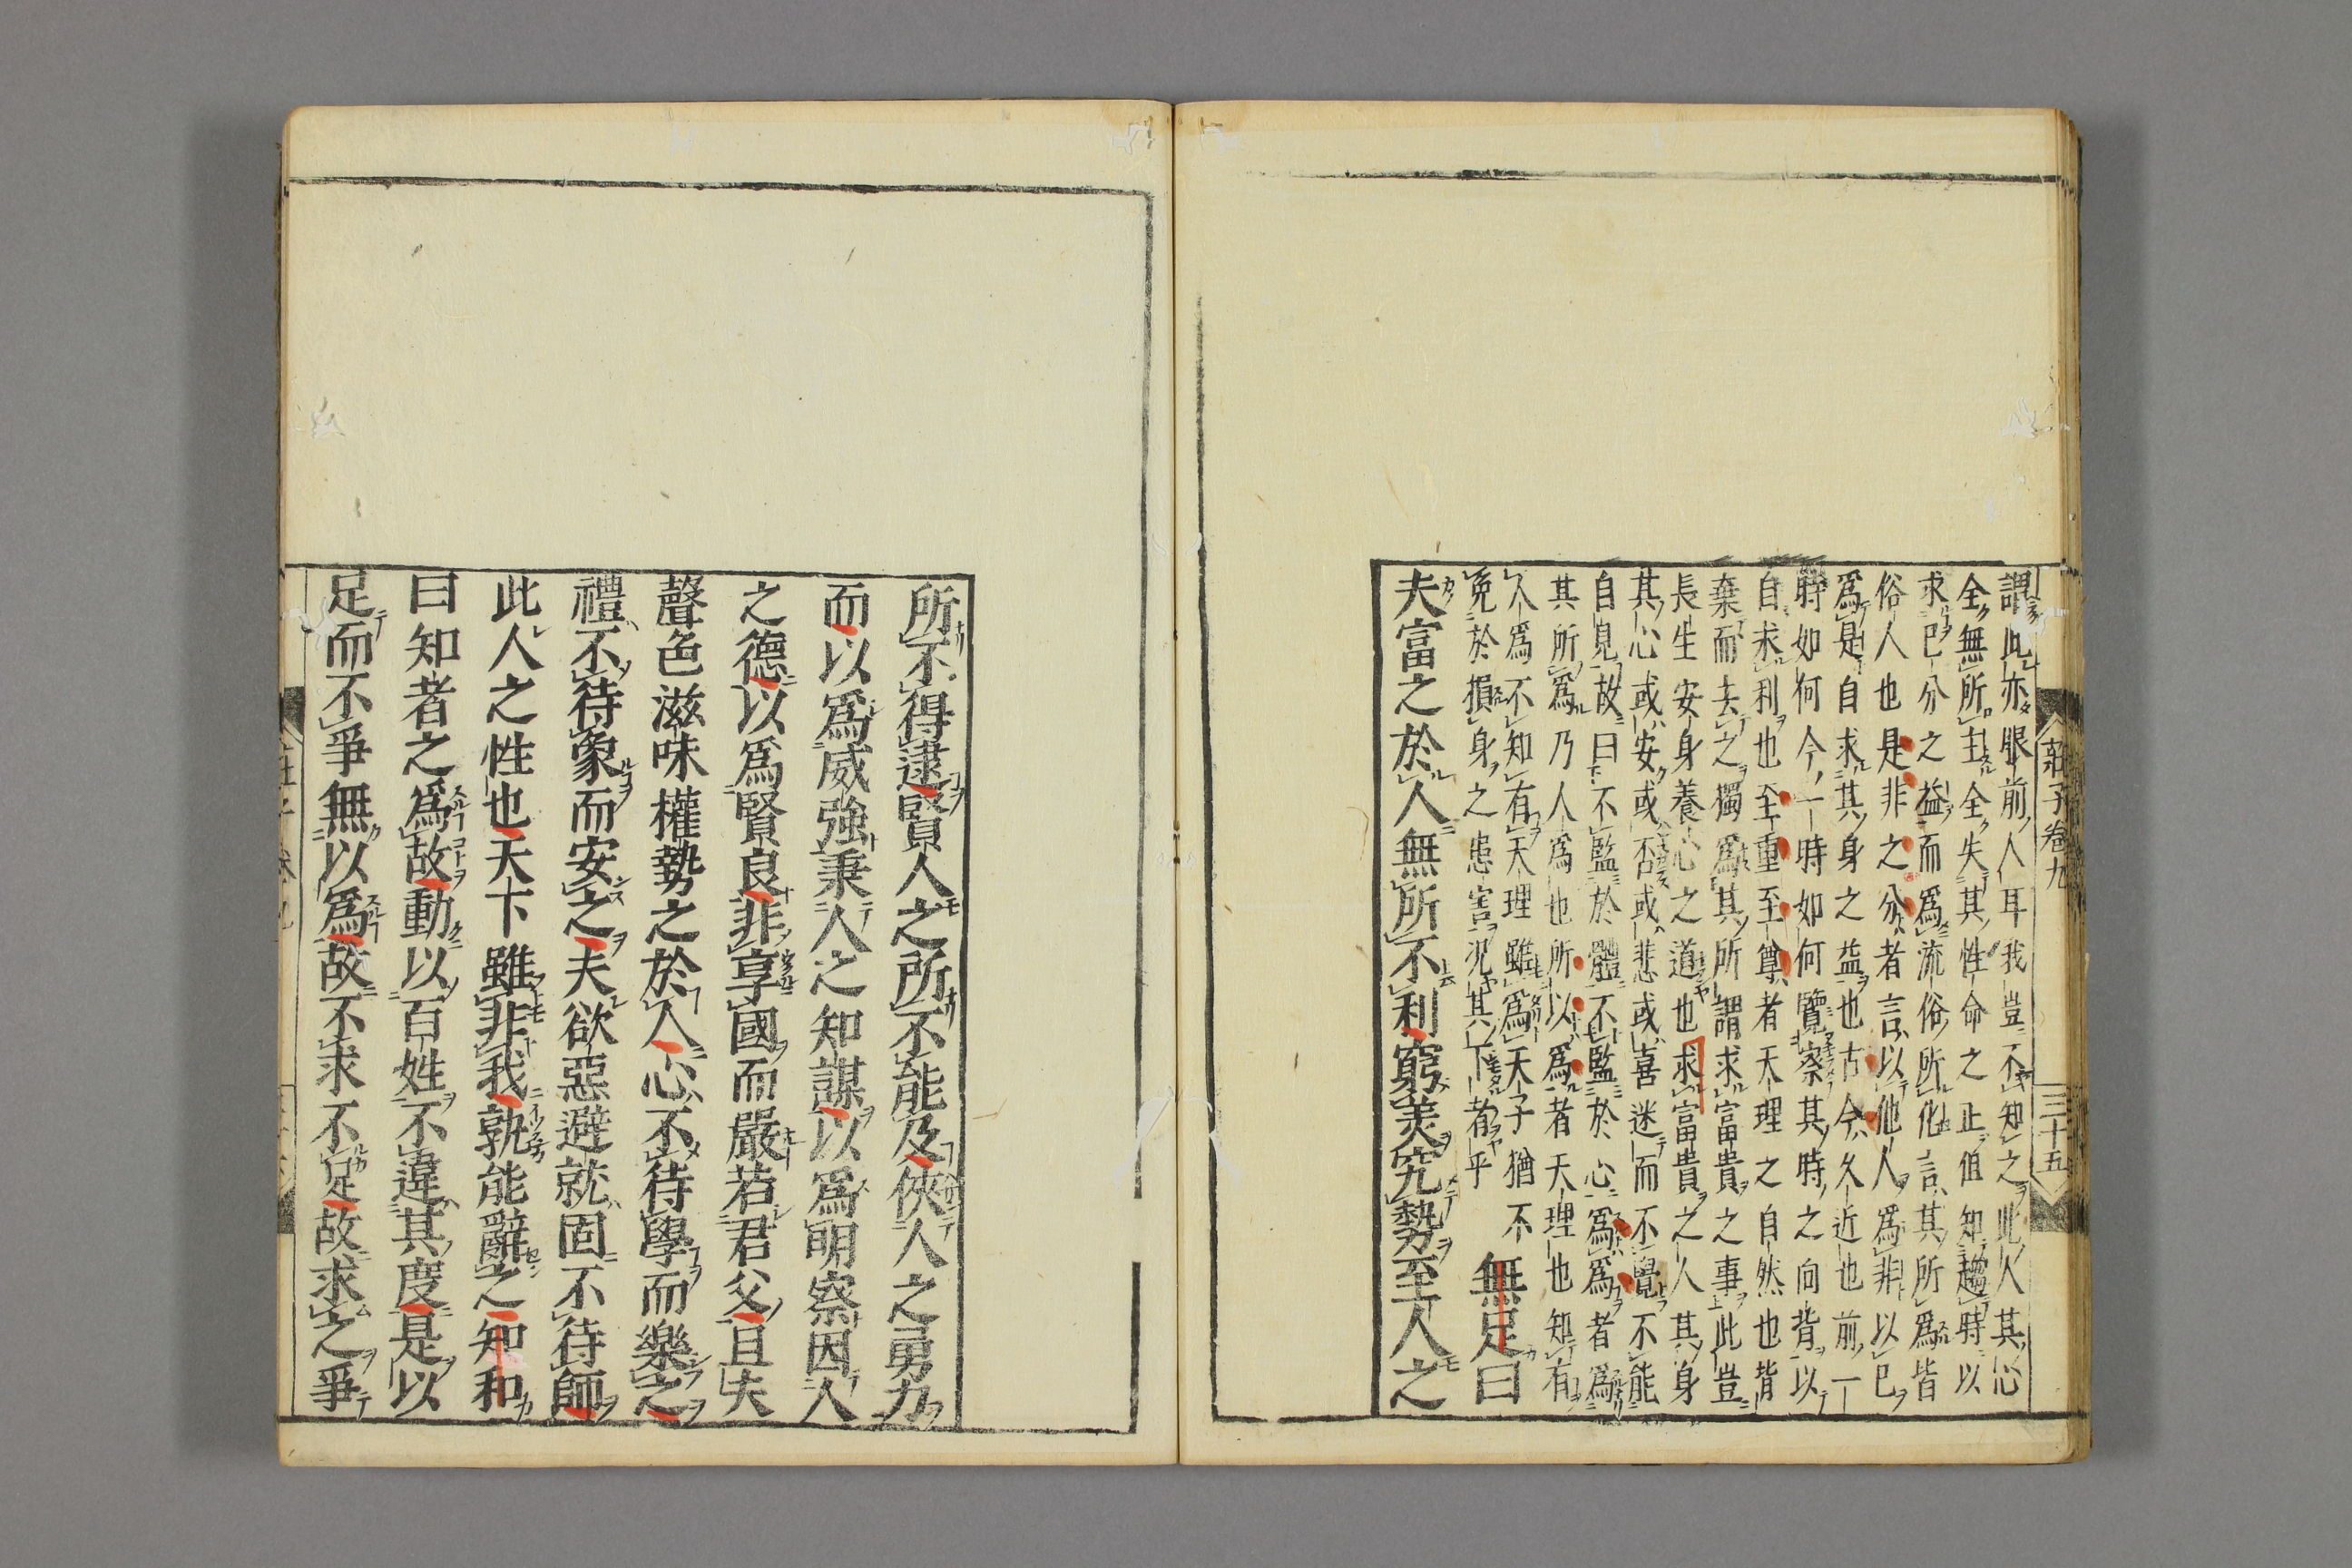 莊子卷九
三十五
謂此亦眼前人耳我豈不知之此人其心
全無所主全失其性命之正但知趨時以
求己分之益而爲流俗所化言其所爲皆
俗人也是非之分者言以他人爲非以己
爲是自求其身之益也古今久近也前一
時如何今一時如何覽察其時之向背以
自求利也至重至尊者天理之自然也背
棄而去之獨爲其所謂求富貴之事此豈
長生安身養心之道也求富貴之人其身
其心或安或否或悲或喜迷而不覺不能
自見故曰不監於體不監於心爲爲者爲
其所爲乃人爲也所以爲者天理也知有
人爲不知有天理雖爲天子猶不
免於損身之患害況其下者乎
無足曰
夫富之於人無所不利窮美究勢至人之
所不得逮賢人之所不能及俠人之勇力
而以爲威強秉人之知謀以爲明察因人
之德以爲賢良非享國而嚴若君父且夫
聲色滋味權勢之於人心不待學而樂之
禮不待象而安之夫欲惡避就固不待師
此人之性也天下雖非我孰能辭之知和
曰知者之爲故動以百姓不違其度是以
足而不爭無以爲故不求不足故求之爭